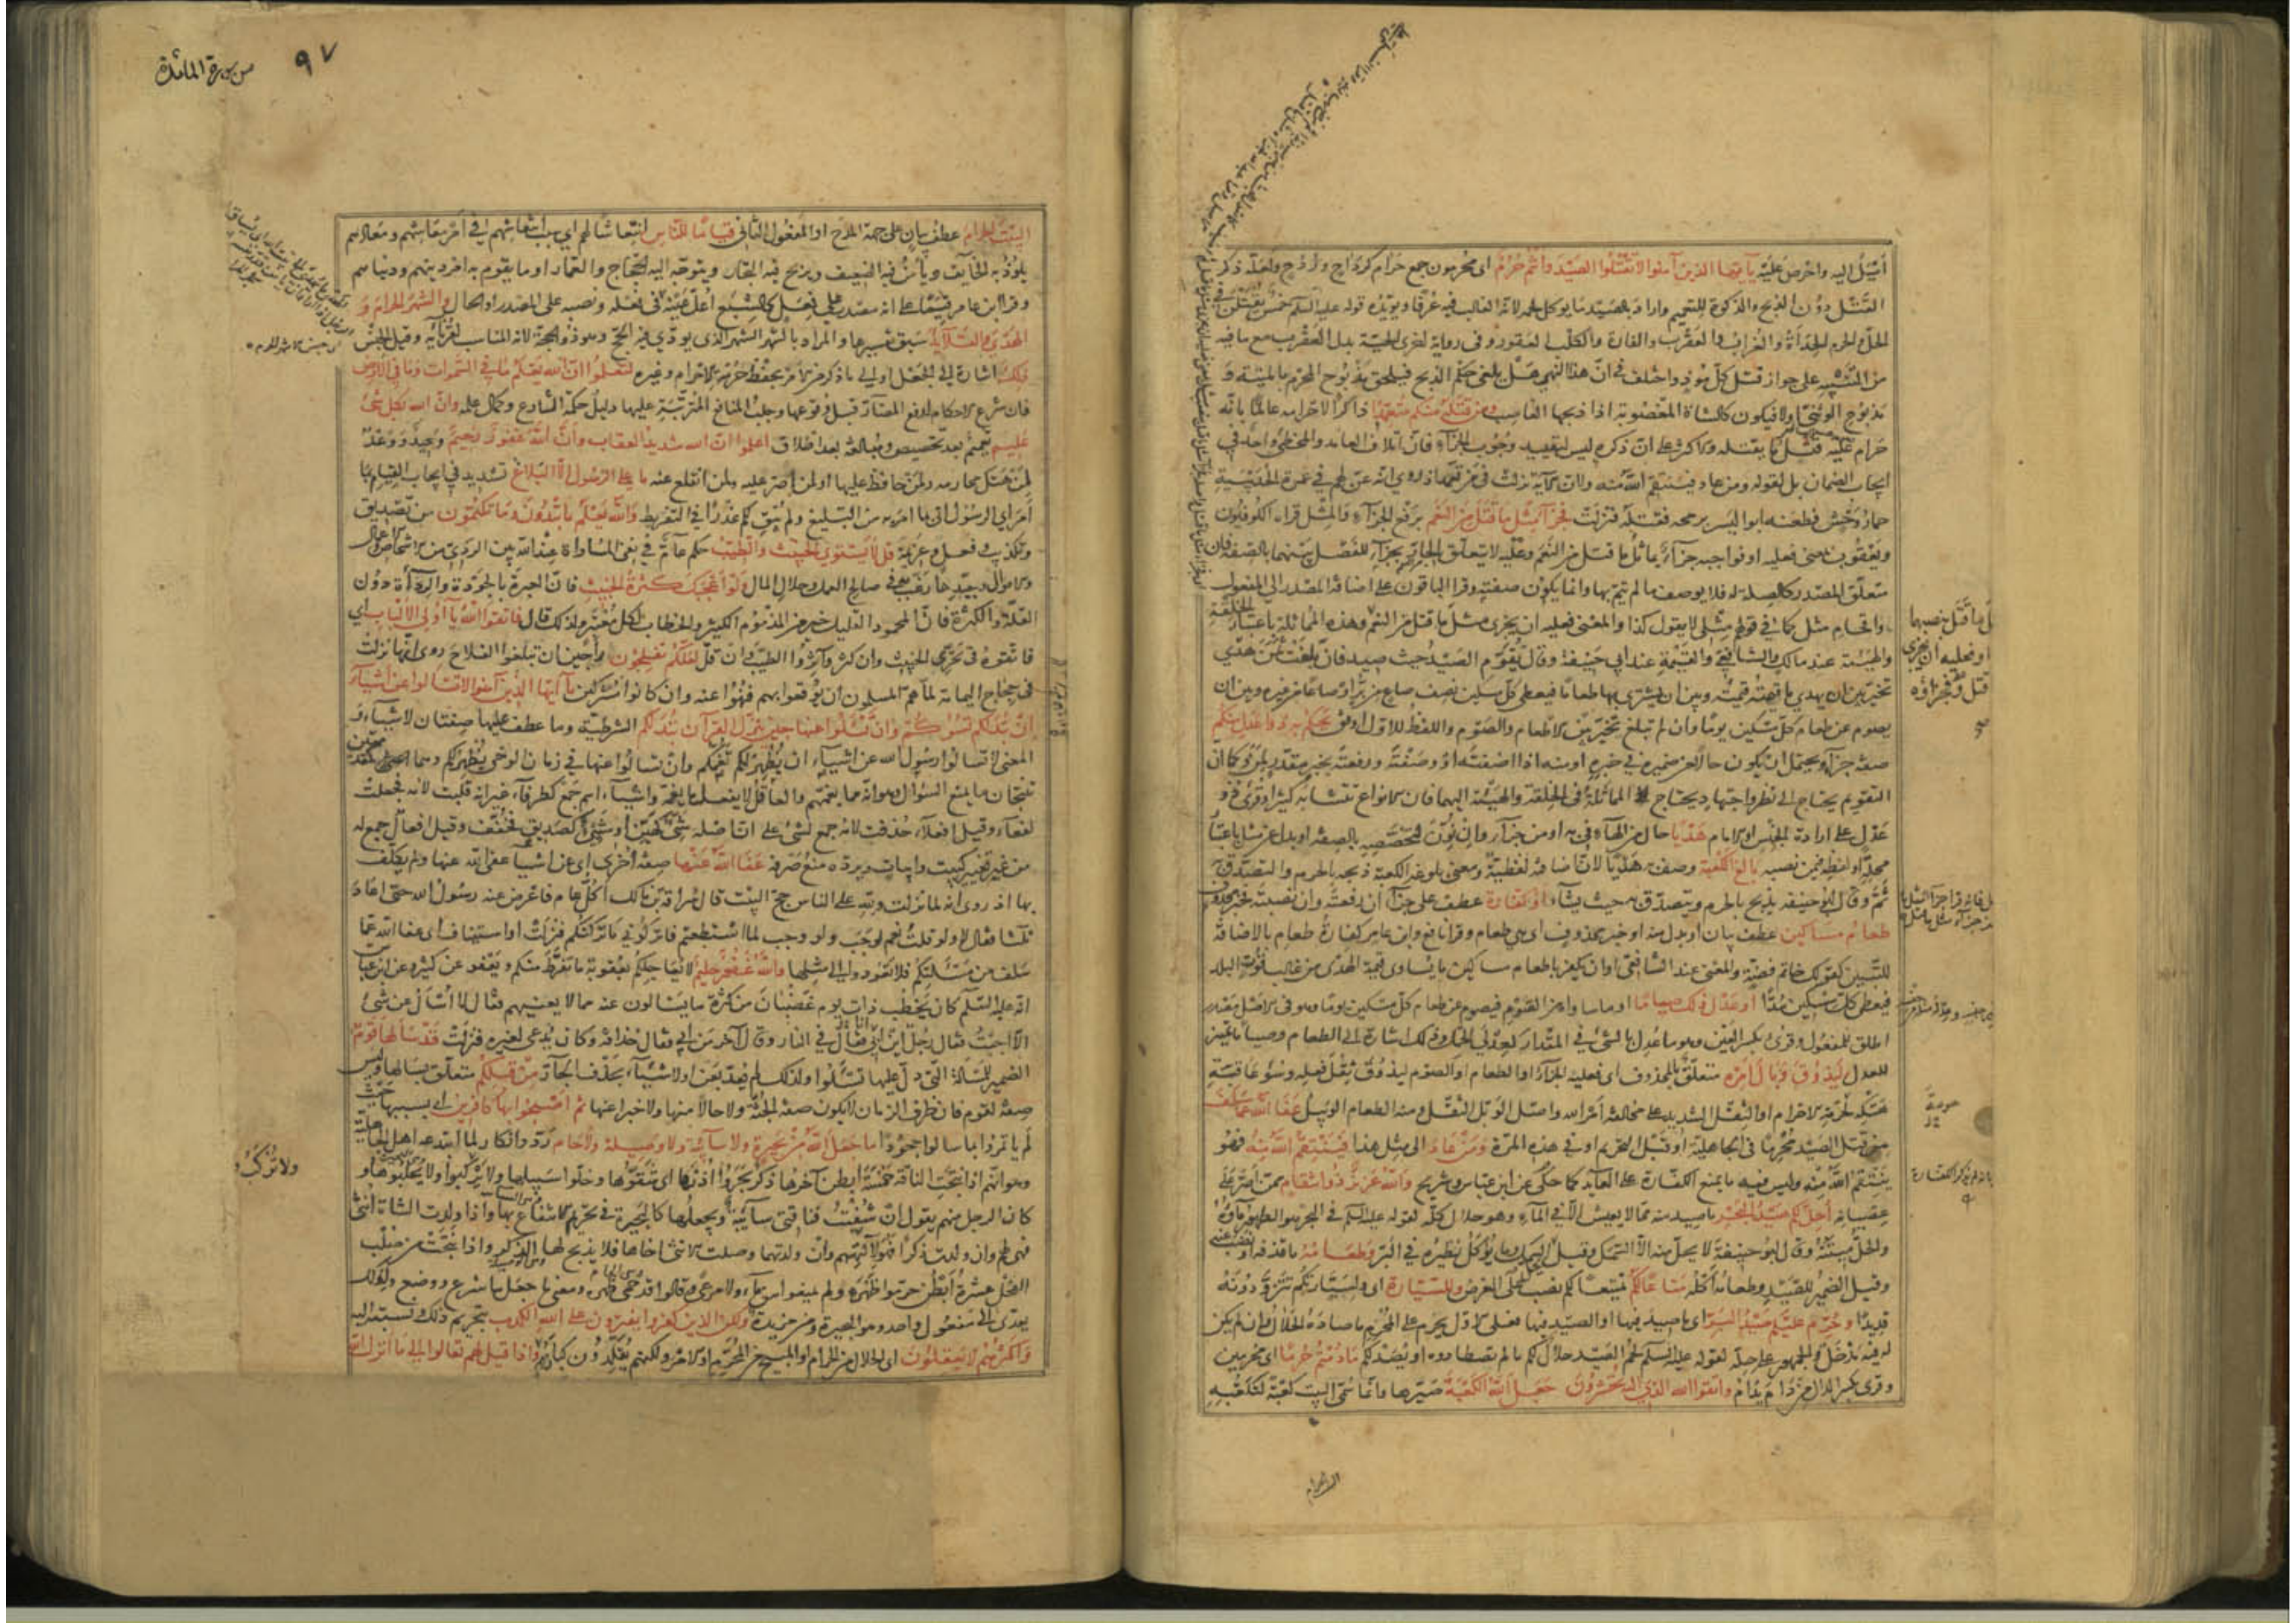 أميل اليه واحرص عليه يا أيها الذين آمنوا لا تقتلوا الصيد وأنتم حرم اى محرمون جمع حرام كرداح وردح ولعله ذكر
القتل دون الذبح والذكوة للتعميم واراد بالصيد ما يوكل لحمه لانه الغالب فيه عرفا ويؤيده قوله عليه السلم خمس يقتلن في
الحل والحرم الحدأة والغراب والعقرب والفارة والكلب العقور وفى رواية اخرى الحية بدل العقرب مع ما فيه
من التنبيه على جواز قتل كل موذ واختلف فى ان هذا النهى هل يلغى حكم الذبح فيلحق مذبوح المحرم بالميتة و
مذبوح الوثنى اولا فيكون كالشاة المغصوبة اذا ذبحها الغاصب ومن قتله منكم متعمدا ذاكرا لاحرامه عالما بانه
حرام عليه قتل ما يقتله والاكثر على ان ذكره ليس لتقييد وجوب الجزاء فان اتلاف العامد والمخطئ واحد في
ايجاب الضمان بل لقوله ومن عاد فينتقم الله منه ولان الآية نزلت فى من تعمد اذ روي انه عن لهم في عمرة الحديبية
حمار وحش فطعنه ابو اليسر برمحه فقتله فنزلت فجزآء مثل ما قتل من النعم برفع الجزآء والمثل قراءة الكوفيون
ويعقوب بمعنى فعليه او فواجبه جزآء يماثل ما قتل من النعم وعليه لا يتعلق الجار بجزآء للفصل بينهما بالصفة فان
متعلق المصدر كالصلة له فلا يوصف ما لم يتم بها وانما يكون صفته وقرا الباقون على اضافة المصدر الى المفعول
واقحام مثل كما في قولهم مثلى لا يقول كذا والمعنى فعليه ان يجزى مثل ما قتل من النعم وهذه المماثلة باعتبار الخلقة
والهيئة عند مالك والشافعى والقيمة عند ابي حنيفة وقال يقوم الصيد حيث صيد فان بلغت ثمن هدي
تخير بين ان يهدي ما قيمته قيمته وبين ان يشترى بها طعاما فيعطى كل مسكين نصف صاع من بر او صاعا من غيره وبين ان
يصوم عن طعام كل مسكين يوما وان لم تبلغ تخير بين الاطعام والصوم واللفظ للاول اوفق يحكم به ذوا عدل منكم
صفة جزآء ويحتمل ان يكون حالا من ضميره في خبره او منه اذا اضفته او وصفته ورفعته بخبر مقدر لمن وكما ان
التقويم يحتاج الى نظر واجتهاد يحتاج المماثلة فى الخلقة والهيئة اليهما فان الانواع تتشابه كثيرا وقرئ ذو
عدل على ارادة الجنس او الامام هديا حال من الهاء في به او من جزآء وان نون لتخصصه بالصفة او بدل عن مثل باعتبار
محله او لفظه فيمن نصبه بالغ الكعبة وصف به هديا لان اضافته لفظية ومعنى بلوغه الكعبة ذبحه بالحرم والتصدق به
ثم وقال ابو حنيفة يذبح بالحرم ويتصدق به حيث يشاء او كفارة عطف على جزآء ان رفعته وان نصبته فخبر محذوف
طعام مساكين عطف بيان او بدل منه او خبر محذوف اى هي طعام وقرا نافع وابن عامر كفارة طعام بالاضافة
للتبيين كقولك خاتم فضة والمعنى عند الشافعى او ان يكفر باطعام مساكين ما يساوى قيمة الهدى من غالب قوت البلد
فيعطى كل مسكين مدا او عدل ذلك صياما او ما ساواه من الصوم فيصوم عن طعام كل مسكين يوما وهو فى الاصل مصدر
اطلق للمفعول وقرئ بكسر العين وهو ما عدل بالشئ في المقدار كعدلي الحمل وذلك اشارة الى الطعام وصياما تمييز
للعدل ليذوق وبال أمره متعلق بالمحذوف اى فعليه الجزاء او الطعام او الصوم ليذوق ثقل فعله وسوء عاقبة
هتكه لحرمة الاحرام او الثقل الشديد على مخالفة أمر الله واصل الوبل الثقل ومنه الطعام الوبيل عفا الله عما سلف
من قتل الصيد محرما فى الجاهلية او قبل التحريم او في هذه المرة ومن عاد الى مثل هذا فينتقم الله منه فهو
ينتقم الله منه وليس فيه ما يمنع الكفارة على العائد كما حكى عن ابن عباس وشريح والله عزيز ذو انتقام ممن اصر على
عصيانه أحل لكم صيد البحر ما صيد منه مما لا يعيش الا في المآء وهو حلال كله لقوله عليه السلم فى البحر هو الطهور مآؤه
والحل ميتته وقال ابو حنيفة لا يحل منه الا السمك وقيل السمك وما يوكل نظيره في البر وطعامه ما قذفه او نضب عنه
وقيل الضمير للصيد وطعامه اكله متاعا لكم تمتيعا لكم نصب على الغرض وللسيارة اى ولسيارتكم يتزودونه
قديدا وحرم عليكم صيد البر اى ما صيد فيها او الصيد فيها فعلى الاول يحرم على المحرم ما صاده الحلال وان لم يكن
له فيه مدخل والجمهور على حله لقوله عليه السلم لحم الصيد حلال لكم ما لم تصطادوه او يصد لكم ما دمتم حرما اى محرمين
وقرئ بكسر الدال من دام يدام واتقوا الله الذي اليه تحشرون جعل الله الكعبة صيرها وانما سمى البيت كعبة لتكعبه
ما قتل بنصبهما
او فعليه ان يجزى
قتل فجزاؤه
من سورة المائدة
٩٧
البيت الحرام عطف بيان على جهة المدح او المفعول الثانى قياما للناس انتعاشا لهم اي سبب انتعاشهم في أمر معاشهم ومعادهم
يلوذ به الخايف ويأمن فيه الضعيف ويربح فيه التجار ويتوجه اليه الحجاج والعمار او ما يقوم به امر دينهم ودنياهم
وقرا ابن عامر قيما على انه مصدر على فعل كالشبع اعل عينه كما فى فعله ونصبه على المصدر او الحال والشهر الحرام و
الهدي والقلآيد سبق تفسيرها والمراد بالشهر الشهر الذى يودي فيه الحج وهو ذو الحجة لانه المناسب لقرنائه وقيل الجنس
ذلك اشارة الى الجعل او الى ما ذكر من الامر بحفظ حرمة الاحرام وغيره لتعلموا ان الله يعلم ما في السموات وما في الارض
فان شرع الاحكام لدفع المضآر قبل وقوعها وجلب المنافع المترتبة عليها دليل حكمة الشارع وكمال علمه وان الله بكل شئ
عليم تعميم بعد تخصيص ومبالغة بعد اطلاق اعلموا ان الله شديد العقاب وأن الله غفور رحيم وعيد ووعد
لمن هتك محارمه ولمن حافظ عليها او لمن اصر عليه ولمن انقلع عنه ما على الرسول الا البلاغ تشديد في ايجاب القيام بما
أمر اي الرسول اتى بما امر به من التبليغ ولم يبق لكم عذرا في التفريط والله يعلم ما تبدون وما تكتمون من تصديق
وتكذيب وفعل وعزيمة قل لا يستوي الخبيث والطيب حكم عآم في نفى المساواة عند الله بين الردئ من الاشخاص والاعمال
والاموال وجيدها رغب به فى صالح العمل وحلال المال ولو أعجبك كثرة الخبيث فان العبرة بالجودة والردآءة دون
القلة والكثرة فان المحمود القليل خير من المذموم الكثير والخطاب لكل معتبر ولذلك قال فاتقوا الله يا أولى الالباب اي
فاتقوه فى تحرى الخبيث وان كثر وآثروا الطيب وان قل لعلكم تفلحون راجين ان تبلغوا الفلاح روى انها نزلت
فى حجاج اليمامة لما هم المسلمون ان يوقعوا بهم فنهوا عنه وان كانوا مشركين يا أيها الذين آمنوا لا تسألوا عن أشيآء
ان تبد لكم تسؤكم وان تسئلوا عنها حين ينزل القرآن تبد لكم الشرطية وما عطف عليها صفتان لاشيآء و
المعنى لا تسألوا رسول الله عن اشيآء ان تظهر لكم تغمكم وان تسالوا عنها في زمان الوحى تظهر لكم وهما كمقدمتين
تنتجان ما يمنع السوال وهو انه مما يغمهم والعاقل لا يفعل ما يغمه واشيآء اسم جمع كطرفآء غير انه قلبت لامه فجعلت
لفعآء وقيل افعلآء حذفت لامه جمع لشئ على ان اصله شئ كهين او شئ كصديق فخفف وقيل افعال جمع له
من غير تغيير كبيت وابيات ويرده منع صرفه عفا الله عنها صفة أخرى اى عن اشيآء عفى الله عنها ولم يكلف
بها اذ روى انه لما نزلت ولله على الناس حج البيت قال سراقة بن مالك أكل عام فاعرض عنه رسول الله حتى اعاد
ثلثا فقال لا ولو قلت نعم لوجب ولو وجب لما استطعتم فاتركوني ما تركتكم فنزلت او استيناف اى عفا الله عما
سلف من مسئلتكم فلا تعودوا الى مثلها والله غفور حليم لا يعاجلكم بعقوبة ما تفرط منكم ويعفو عن كثير وعن ابن عباس
انه عليه السلم كان يخطب ذات يوم غضبان من كثرة ما يسالون عنه مما لا يعنيهم فقال لا أسأل عن شئ
الا اجبت فقال رجل اين ابى فقال في النار وقال آخر من ابي فقال حذافة وكان يدعى لغيره فنزلت قد سألها قوم
الضمير للمسالة التى دل عليها تسئلوا ولذلك لم يعد بعن او لاشيآء بحذف الجآر من قبلكم متعلق بسالها وليس
صفة لقوم فان ظرف الزمان لا يكون صفة للجثة ولا حالا منها ولا خبرا عنها ثم أصبحوا بها كافرين اى بسببها حيث
لم ياتمروا بما سالوا جحودا ما جعل الله من بحيرة ولا سآئبة ولا وصيلة ولا حام رد وانكار لما ابتدعه اهل الجاهلية
وهو انهم اذا نتجت الناقة خمسة ابطن آخرها ذكر بحروا اذنها اى شقوها وخلوا سبيلها ولا تركبوا ولا يحلبوها و
كان الرجل منهم يقول ان شفيت فناقتى سآئبة ويجعلها كالبحيرة فى تحريم الانتفاع بها واذا ولدت الشاة انثى
فهى لهم وان ولدت ذكرا فهو لآلهتهم وان ولدتهما وصلت الانثى اخاها فلا يذبح لها الذكر واذا نتجت من صلب
الفحل عشرة أبطن حرموا ظهره ولم يمنعوه من مآء ولا مرعى وقالوا قد حمى ظهره ومعنى ما جعل ما شرع ووضع ولذلك
يعدى الى مفعول واحد وهو البحيرة ومن مزيدة ولكن الذين كفروا يفترون على الله الكذب بتحريم ذلك ونسبته اليه
وأكثرهم لا يعقلون اى الحلال من الحرام او المبيح من المحرم او الآمر ولكنهم يقلدون كبارهم واذا قيل لهم تعالوا الى ما أنزل الله